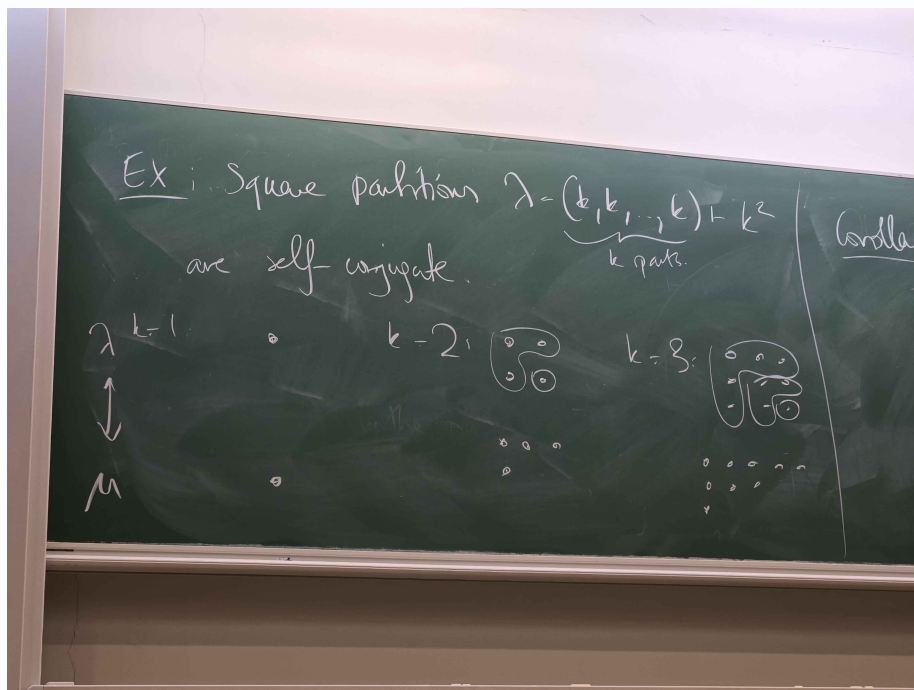 Ex : Square partitions λ = (k, k, ..., k) ⊢ k²
k parts.
are self-conjugate.
Corolla
λ k=1 k=2: k=3:
μ